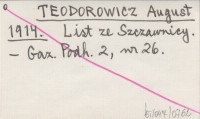 TEODOROWICZ August
1914. List ze Szczawnicy.
– Gaz. Podh. 2, nr 26.